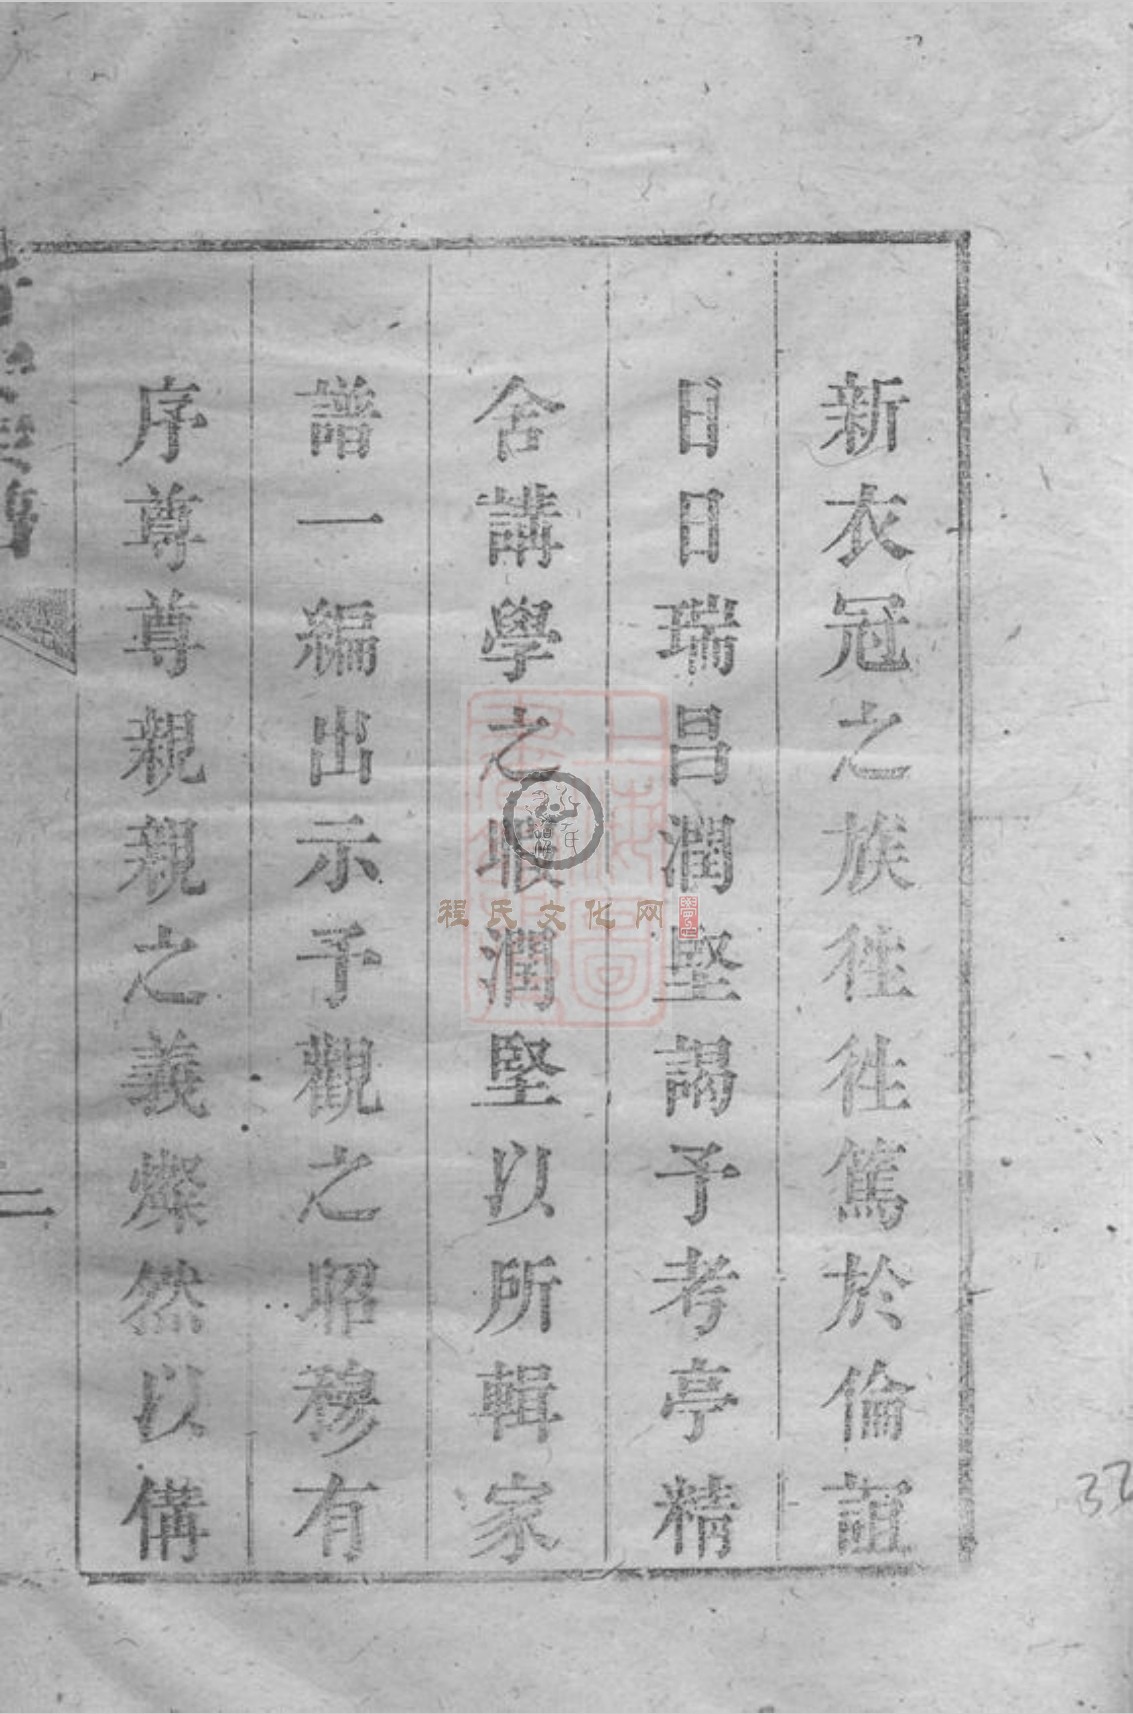 新衣冠之族徃徃篤於倫誼
日日瑞昌潤堅謁予考亭精
舍講學之暇潤堅以所輯家
譜一編出示予觀之昭穆有
序尊尊親親之義燦然以備
二
程氏文化网